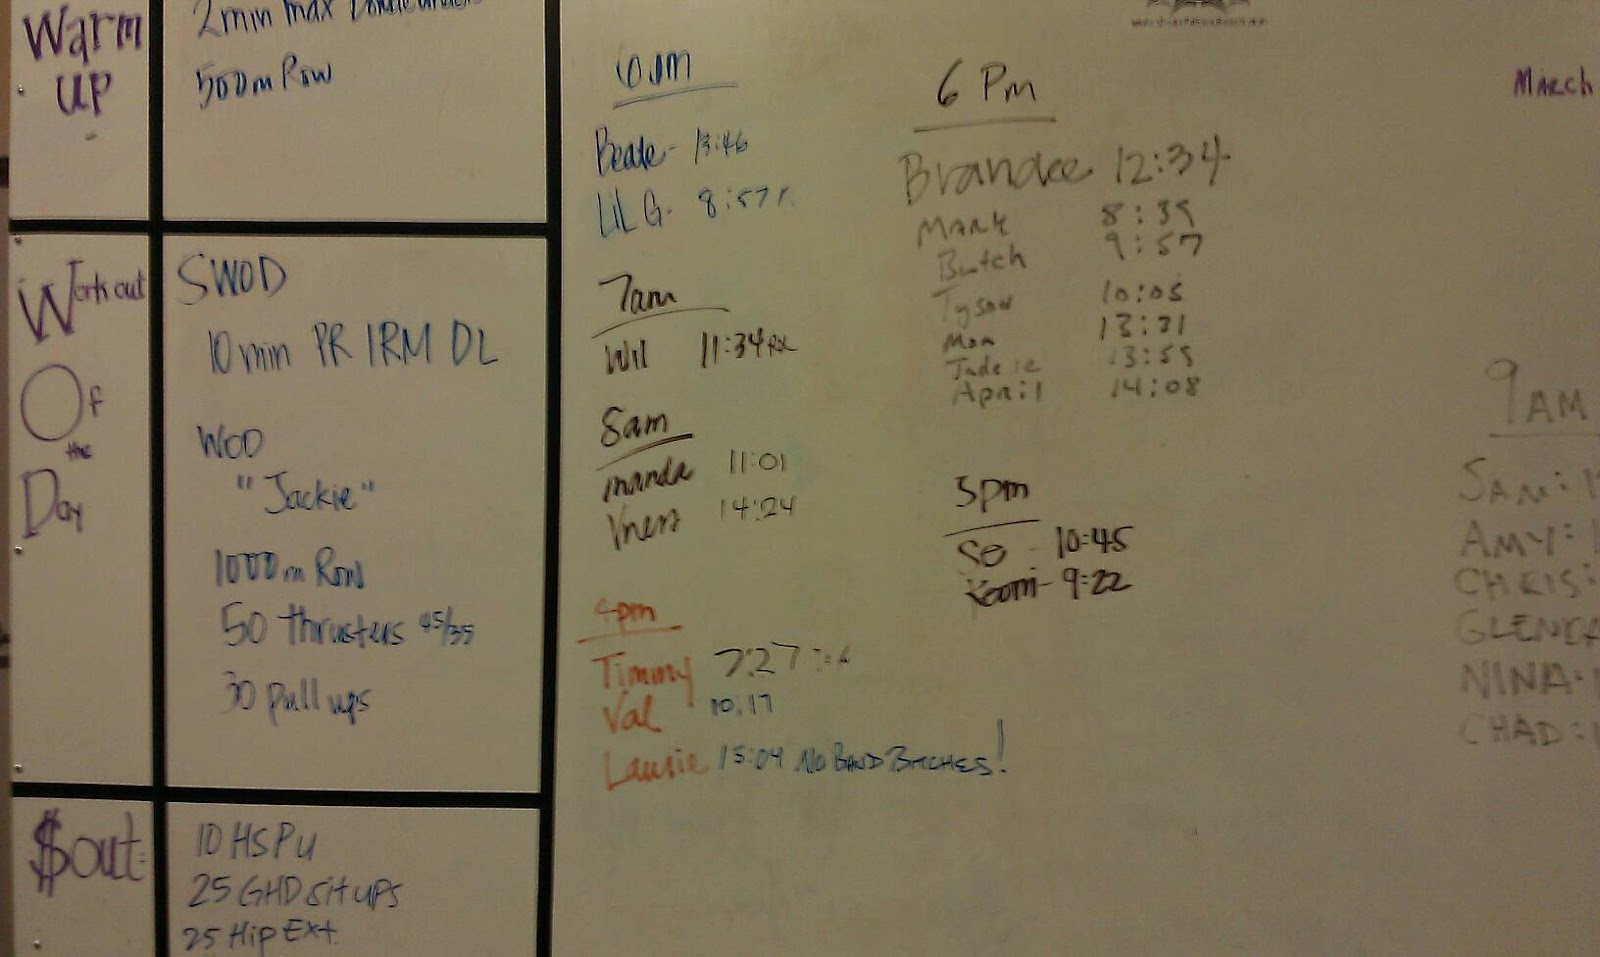 Warm
UP
2 min max
500m Row
Workout
Of
the
Day
SWOD
10 min PR 1RM DL
WOD
"Jackie"
1000m Row
50 thrusters 45/35
30 pull ups
$out:
10 HSPU
25 GHD sit ups
25 Hip Ext.
6am
13:46
LiL G. 8:57
7am
Will 11:34 RX
8am
manda 11:01
14:24
4pm
Timmy 7:27
Val 10:17
Laurie 15:04 No BAND BITCHES!
6 Pm
Brandee 12:34
MARK 8:39
Butch 9:57
Tyson 10:05
Mon 13:21
13:55
April 14:08
5pm
10:45
9:22
MARCH
9 AM
SAM:
AMY:
CHRIS:
GLENDA
NINA:
CHAD: